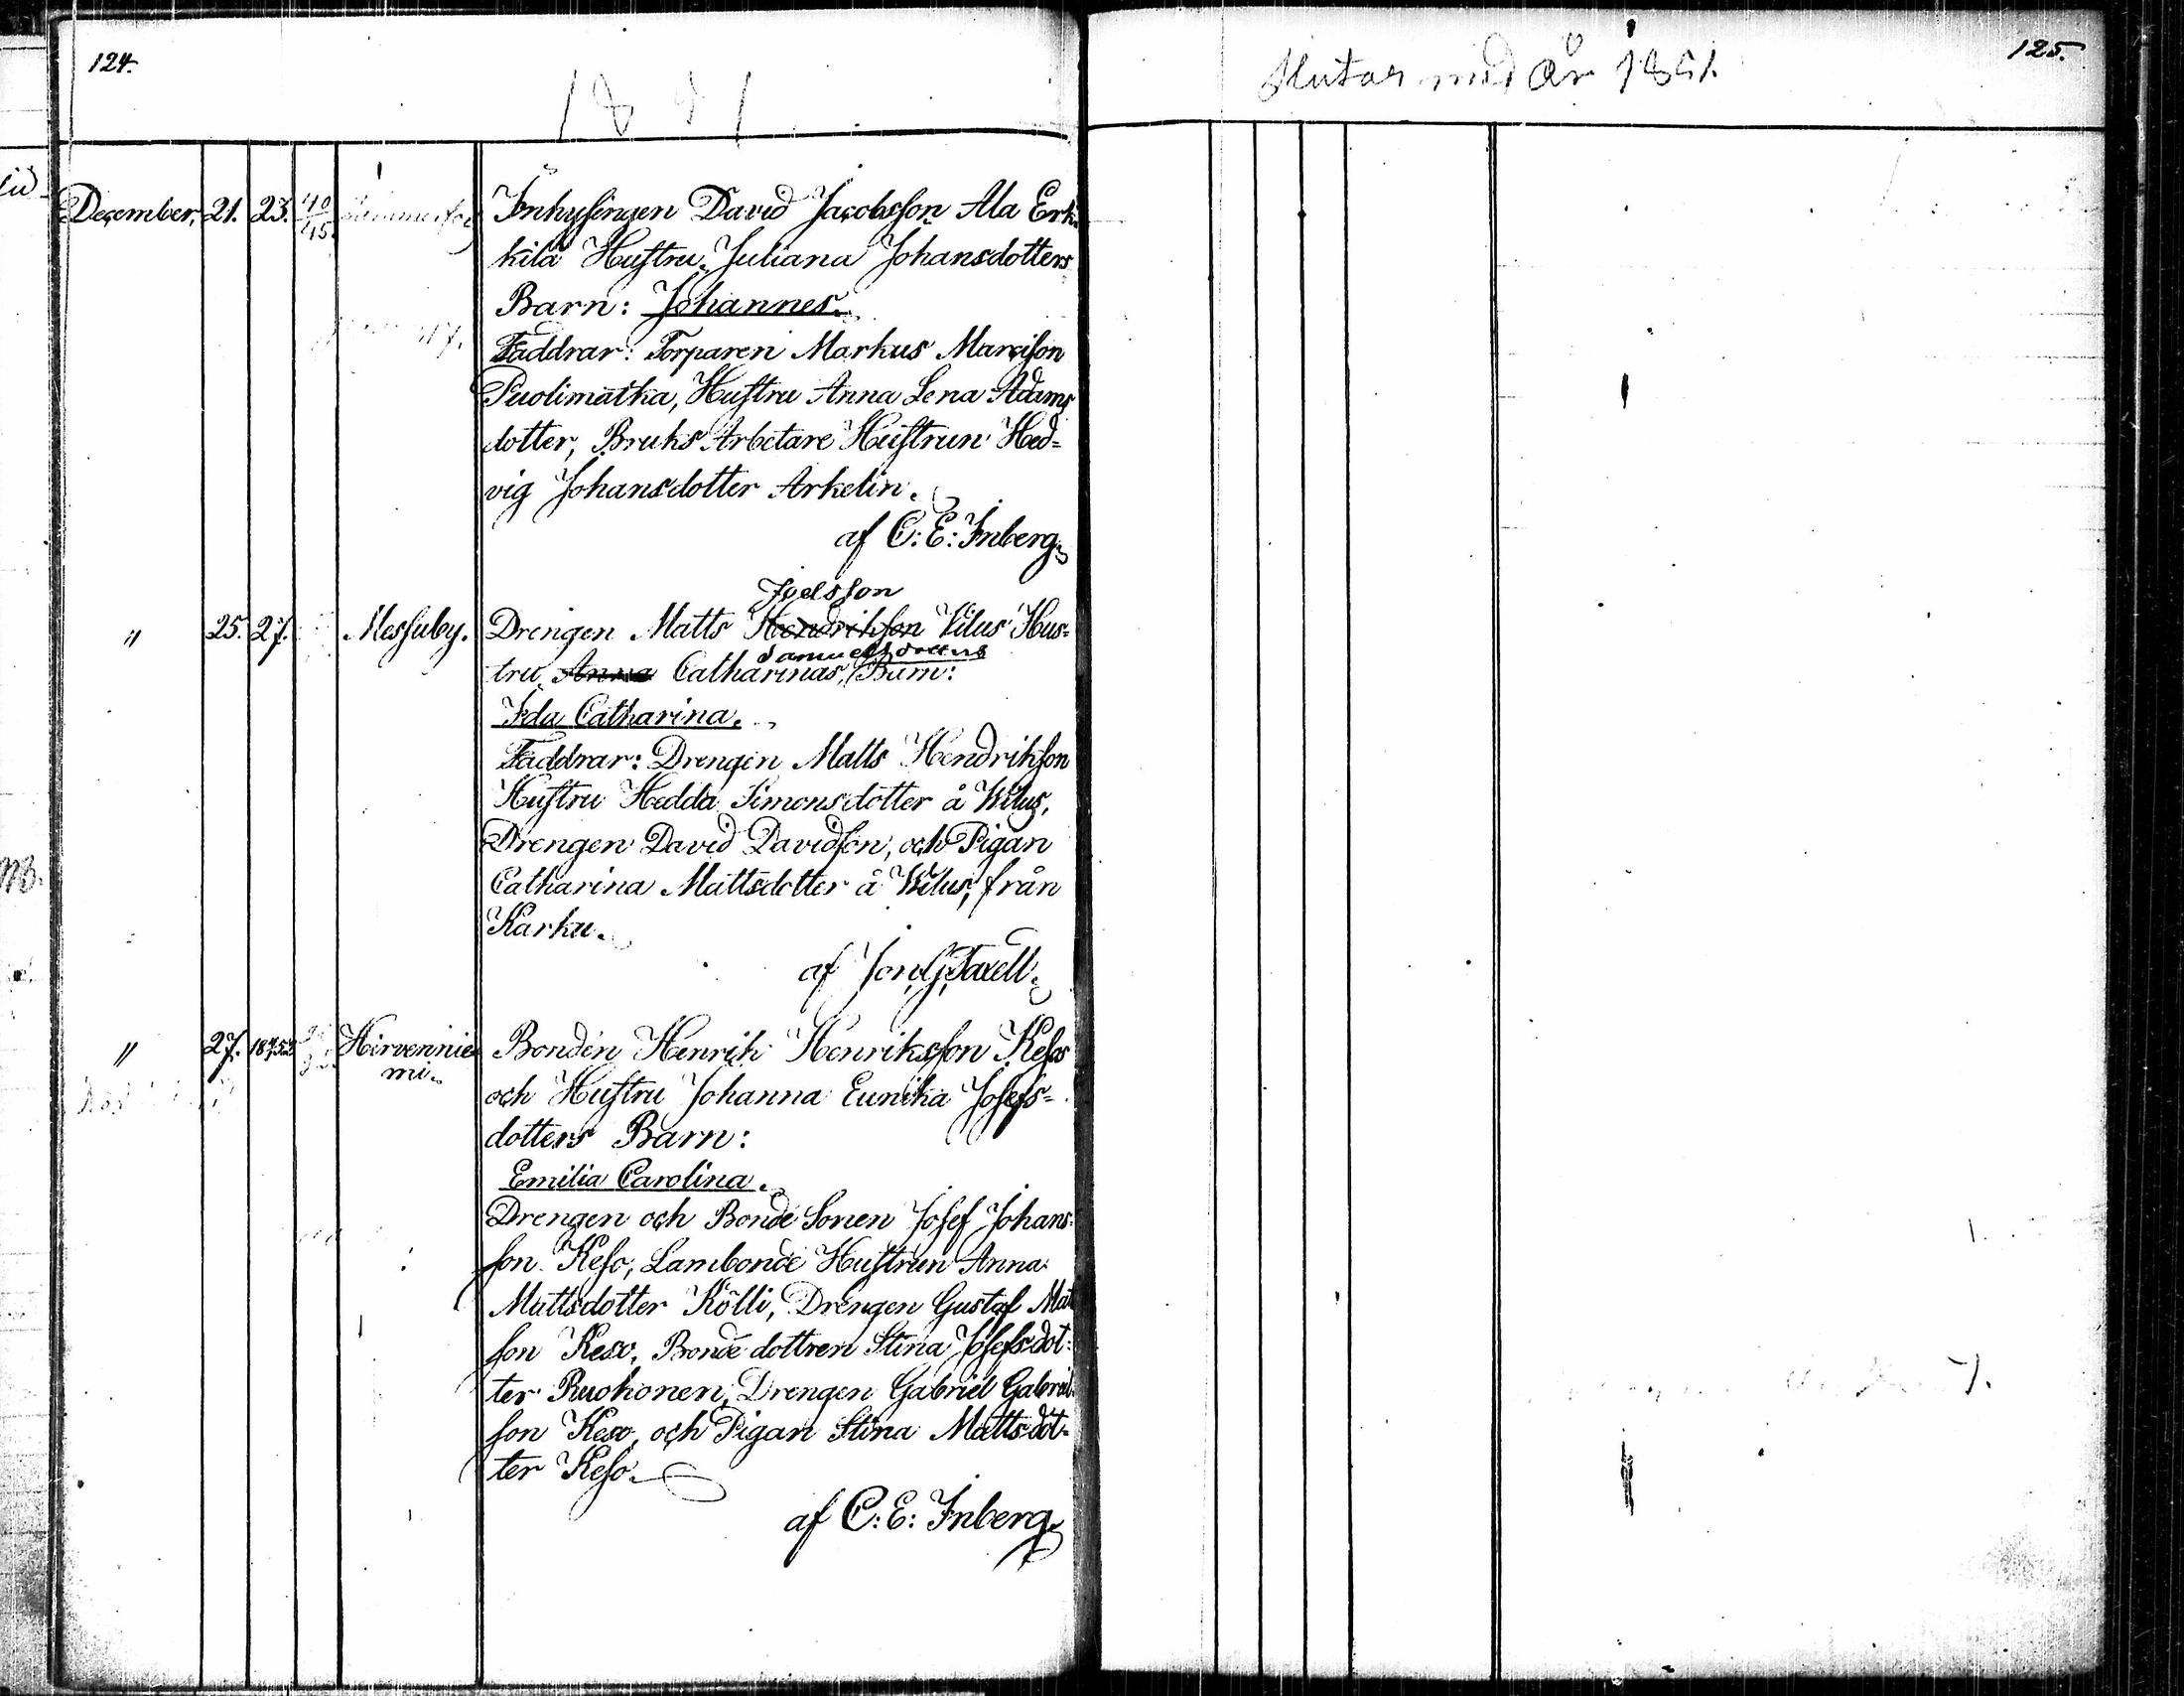 124.
1851
December. 21. 23. 40/45. Inhysingen David Jacobsson Ala Erk-
kilä Hustru, Juliana Johansdotters
Barn: Johannes.
Faddrar: Torparen Markus Marcisson
Puolimatka, Hustru Anna Lena Adams
dotter, Bruks Arbetare Hustrun Hed=
vig Johansdotter Arkelin.
af C: E: Inberg.
Joelsson
" 25. 27. Messuby. Drengen Matts Hendrikson Vilus Hus=
Samuelsdotters
tru, Anna Catharinas, Barn:
Ida Catharina.
Faddrar: Drengen Matts Hendrikson
Hustru Hedda Simonsdotter å Wilus,
Drengen David Davidson, och Pigan
Catharina Mattsdotter å Wilus, från
Karku.
af Jon. G. Taxell.
" 27. Hirvennie
mi.
Bonden Henrik Henriksson Keso
och Hustru Johanna Eunika Josefs=
dotters Barn:
Emilia Carolina.
Drengen och Bonde Sonen Josef Johans=
son Keso, Lambonde Hustrun Anna
Mattsdotter Kölli, Drengen Gustaf Mat
son Keso, Bonde dottren Stina Josefsdot=
ter Ruohonen, Drengen Gabriel Gabriel
son Keso, och Pigan Stina Mattsdot=
ter Keso.
af C: E: Inberg.
Slutar med År 1851.
125.